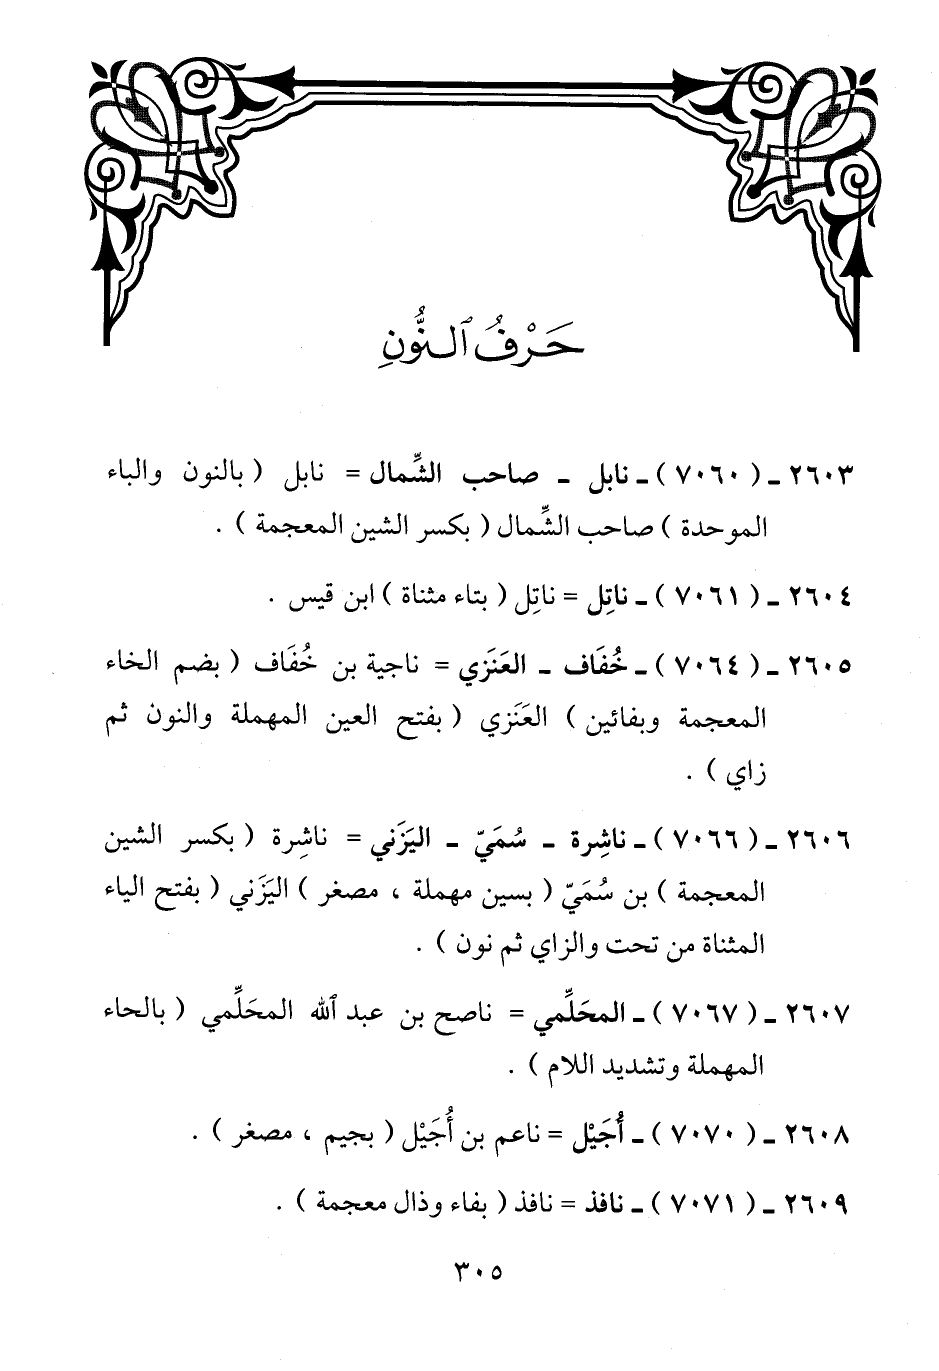 حَرْفُ ٱلنُّونِ
٢٦٠٣ ـ ( ٧٠٦٠ ) ـ نابل ـ صاحب الشِّمال = نابل ( بالنون والباء
الموحدة ) صاحب الشِّمال ( بكسر الشين المعجمة ) .
٢٦٠٤ ـ ( ٧٠٦١ ) ـ ناتِل = ناتِل ( بتاء مثناة ) ابن قيس .
٢٦٠٥ ـ ( ٧٠٦٤ ) ـ خُفَاف ـ العَنَزي = ناجية بن خُفَاف ( بضم الخاء
المعجمة وبفائين ) العَنَزي ( بفتح العين المهملة والنون ثم
زاي ) .
٢٦٠٦ ـ ( ٧٠٦٦ ) ـ ناشِرة ـ سُمَيّ ـ اليَزَني = ناشِرة ( بكسر الشين
المعجمة ) بن سُمَيّ ( بسين مهملة ، مصغر ) اليَزَني ( بفتح الياء
المثناة من تحت والزاي ثم نون ) .
٢٦٠٧ ـ ( ٧٠٦٧ ) ـ المحَلِّمي = ناصح بن عبد ٱلله المحَلِّمي ( بالحاء
المهملة وتشديد اللام ) .
٢٦٠٨ ـ ( ٧٠٧٠ ) ـ أُجَيْل = ناعم بن أُجَيْل ( بجيم ، مصغر ) .
٢٦٠٩ ـ ( ٧٠٧١ ) ـ نافذ = نافذ ( بفاء وذال معجمة ) .
٣٠٥